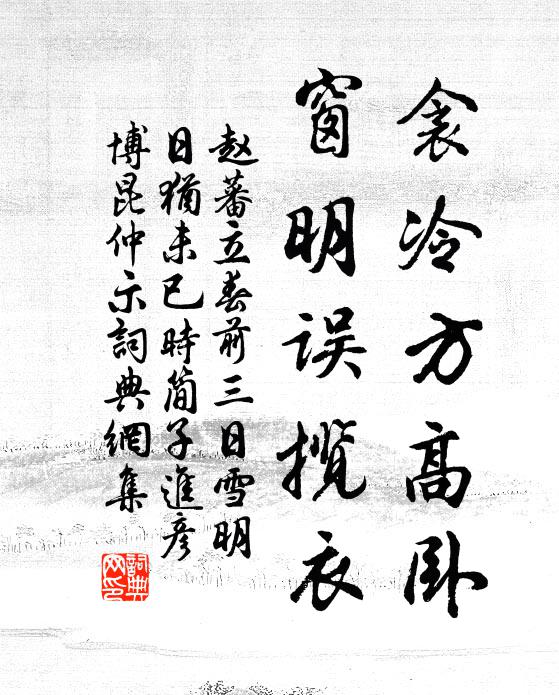 衾冷方高卧
窗明误揽衣
赵蕃立春前三日雪明
日犹未已時简子進彦
博昆仲示詞典網集
詞典網印